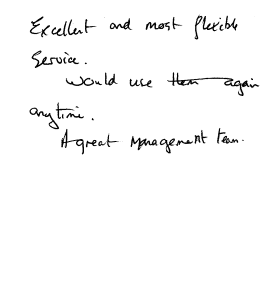 Excellent and most flexible
Service.
Would use them again
anytime.
A great management team.